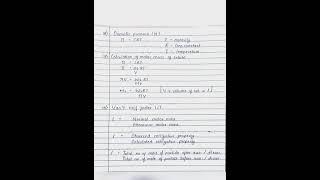 Osmotic pressure (π)
π = CRT
C = molarity
R = Gas constant
T = temperature
Calculation of molar mass of solute
π = CRT
π = n₂RT
V
πV = w₂RT
M₂
M₂ = w₂RT
πV
[V = volume of sol. in L]
Van't Hoff factor (i)
i = Normal molar mass
Abnormal molar mass
i = Observed colligative property
Calculated colligative property
i = Total no. of moles of particle after asso / dissoc.
Total no. of moles of particle before asso / dissoc.